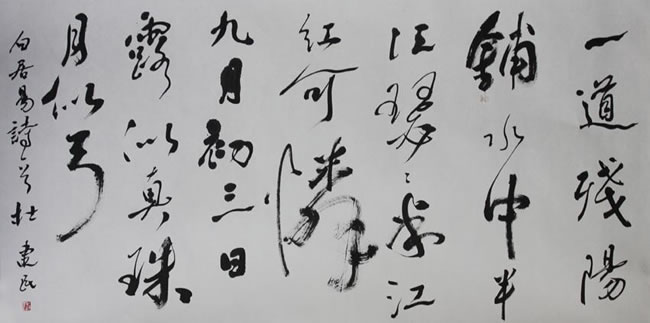 一道殘陽
鋪水中半
江瑟〻半江
紅可憐
九月初三日
露似真珠
月似弓
白居易詩一首杜